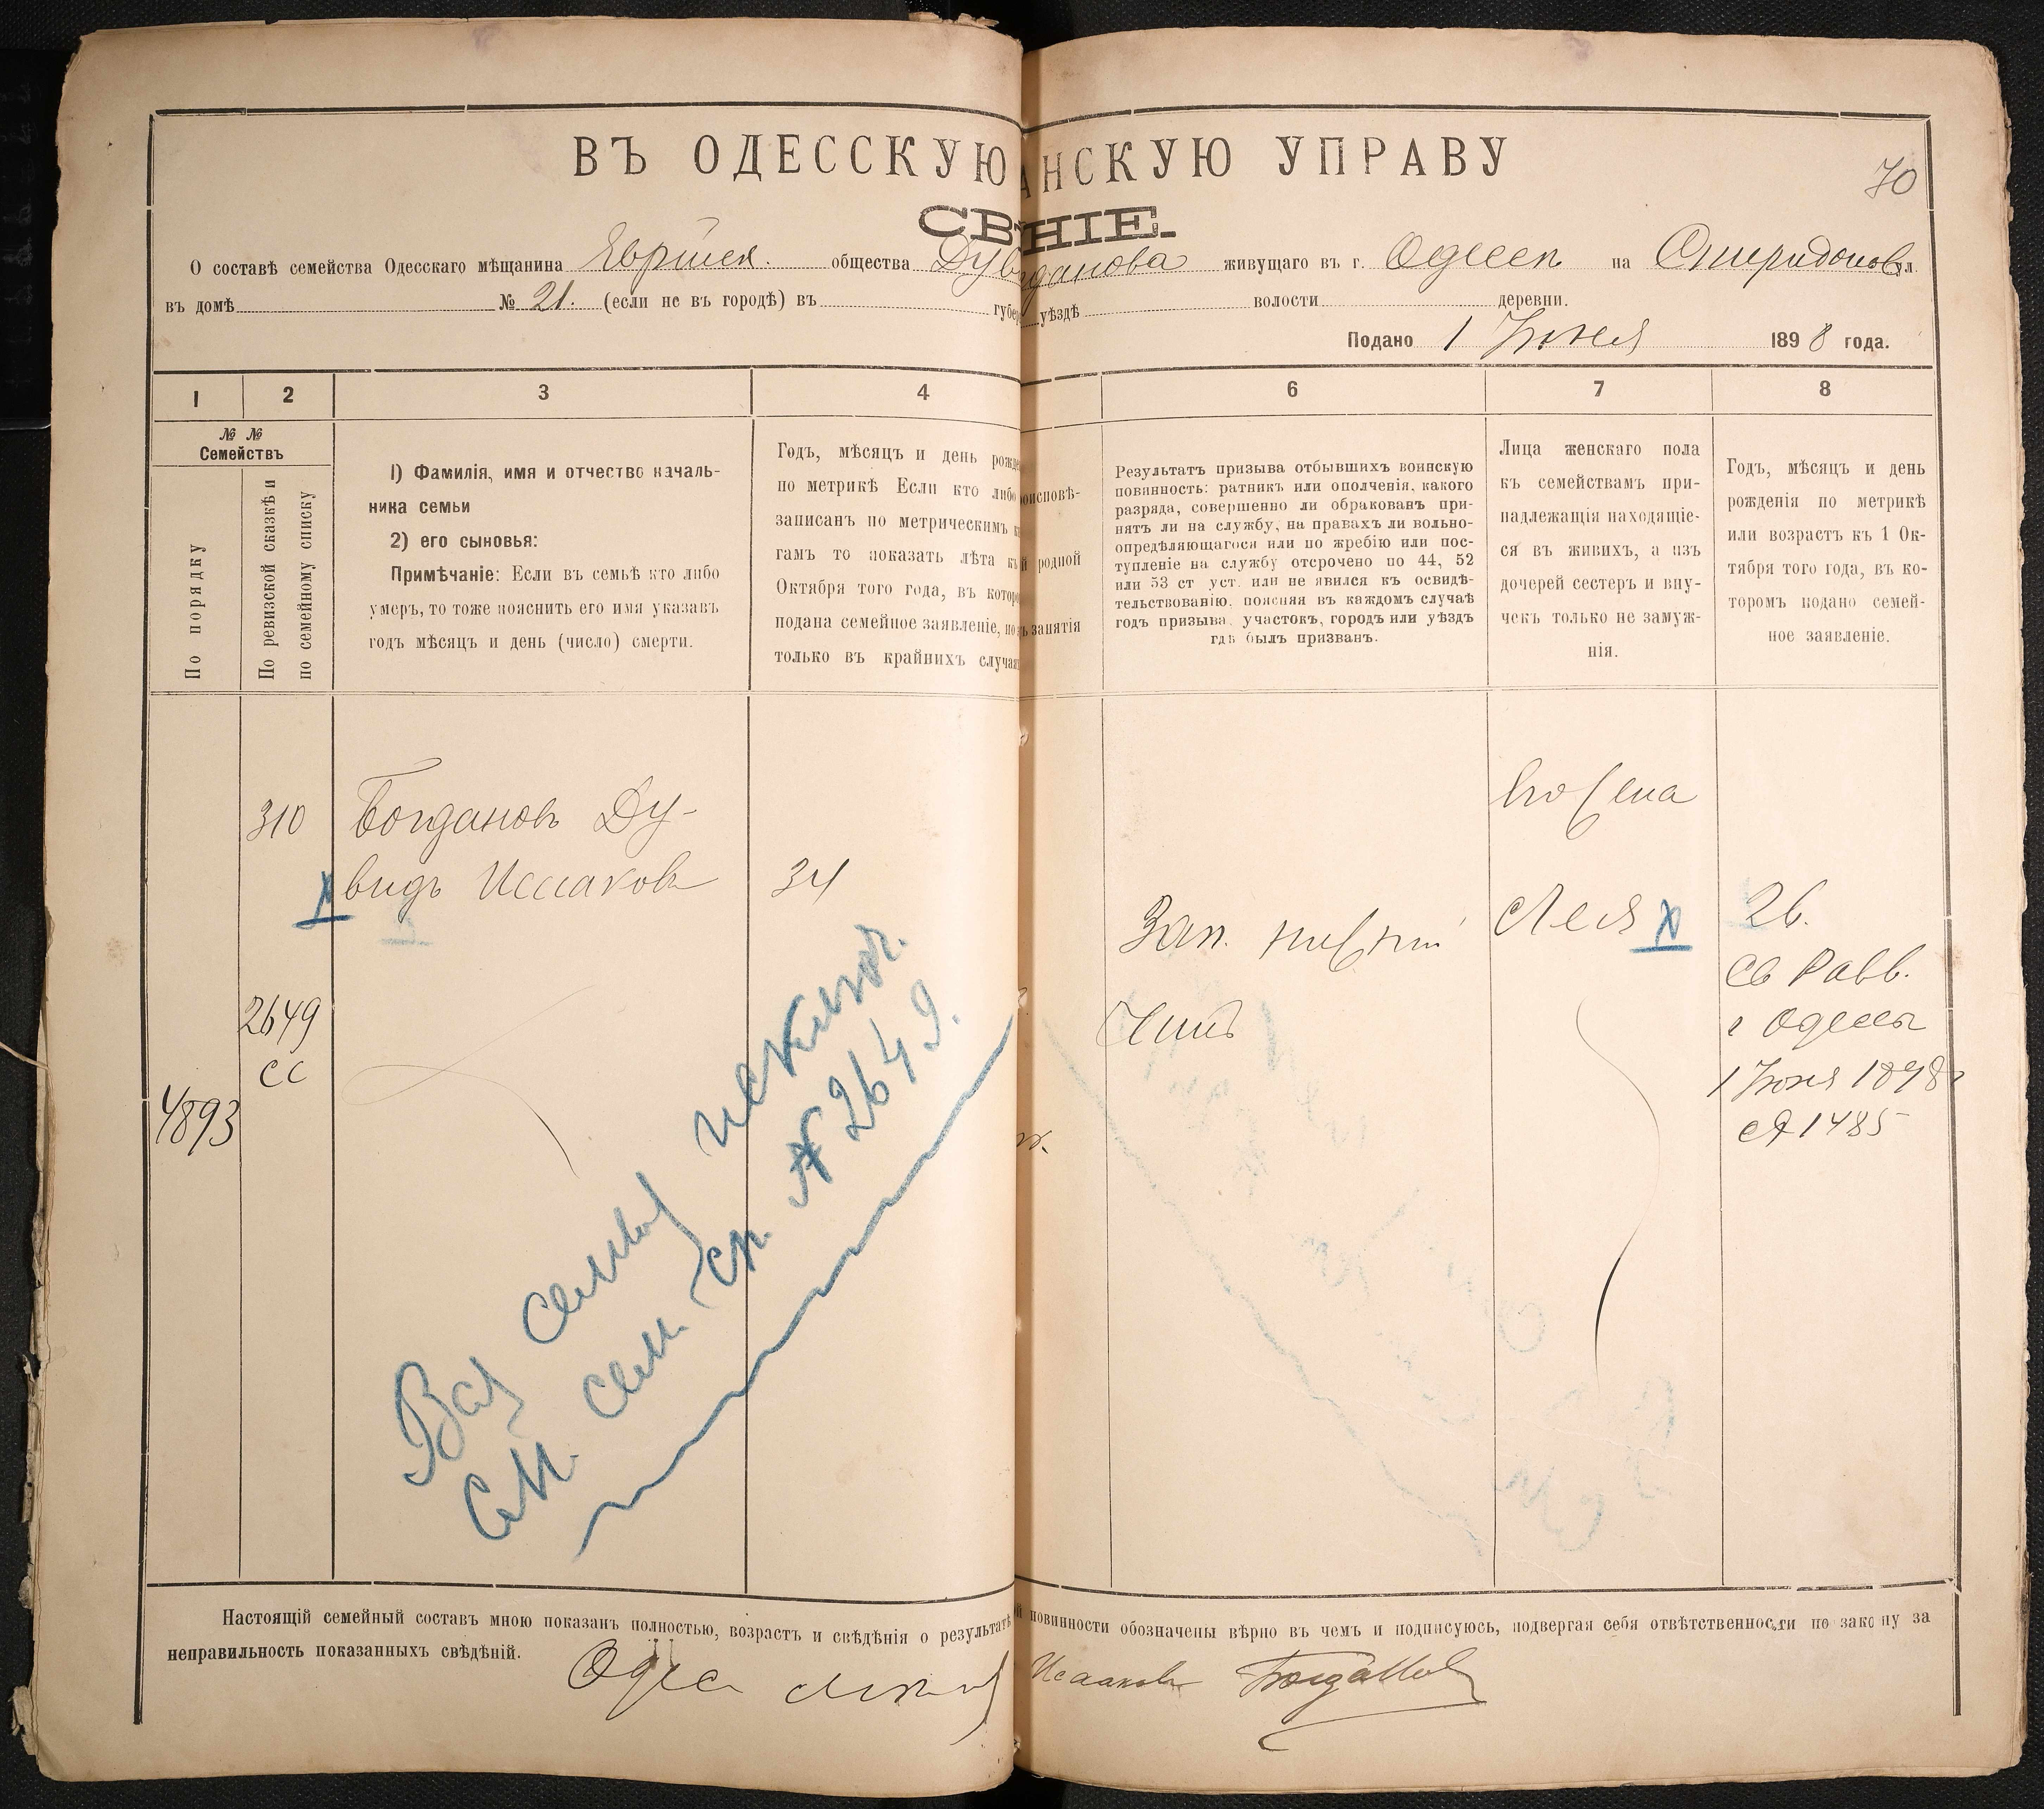 ВЪ ОДЕССКУЮ АНСКУЮ УПРАВУ
70
СВ НІЕ.
О составѣ семейства Одесскаго мѣщанина Еврейск. общества Дув данова живущаго въ г. Одессѣ на Спиридоновс ул.
въ домѣ № 21. (если не въ городѣ) въ губер уѣздѣ волости деревни.
Подано 1 Іюня 1898 года.
1 2 3 4 6 7 8
№ №
Семействъ
По порядку
По ревизской сказкѣ и
по семейному списку
1) Фамилія, имя и отчество началь-
ника семьи
2) его сыновья:
Примѣчаніе: Если въ семьѣ кто либо
умеръ, то тоже пояснить его имя указавъ
годъ мѣсяцъ и день (число) смерти.
Годъ, мѣсяцъ и день рожде
по метрикѣ Если кто либо
записанъ по метрическимъ к
гамъ то показать лѣта къ
Октября того года, въ которо
подана семейное заявленіе, но
только въ крайнихъ случая
оисповѣ-
й родной
ъ занятія
Результатъ призыва отбывшихъ воинскую
повинность: ратникъ или ополченія, какого
разряда, совершенно ли обракованъ при-
нятъ ли на службу, на правахъ ли вольно-
опредѣляющагося или по жребію или пос-
тупленіе на службу отсрочено по 44, 52
или 53 ст уст. или не явился къ освидѣ-
тельствованію, поясняя въ каждомъ случаѣ
годъ призыва, участокъ, городъ или уѣздъ
гдѣ былъ призванъ.
Лица женскаго пола
къ семействамъ при-
надлежащія находящіе-
ся въ живихъ, а изъ
дочерей сестеръ и вну-
чекъ только не замуж-
нія.
Годъ, мѣсяцъ и день
рожденія по метрикѣ
или возрастъ къ 1 Ок-
тября того года, въ ко-
торомъ подано семей-
ное заявленіе.
310
Богдановъ Ду-
видъ Иссаковъ
34
Его жена
Леся
26.
Св Равв.
г Одессы
1 Іюня 1898 г
№ 1485
Зап. нижній
Чинъ
2649
СС
4893
Вся семья исключ.
См. сем. сп. № 2649.
Настоящій семейный составъ мною показанъ полностью, возрастъ и свѣдѣнія о результатѣ й повинности обозначены вѣрно въ чемъ и подписуюсь, подвергая себя отвѣтственности по закону за
неправильность показанныхъ свѣдѣній.
Исааковъ Богдановъ